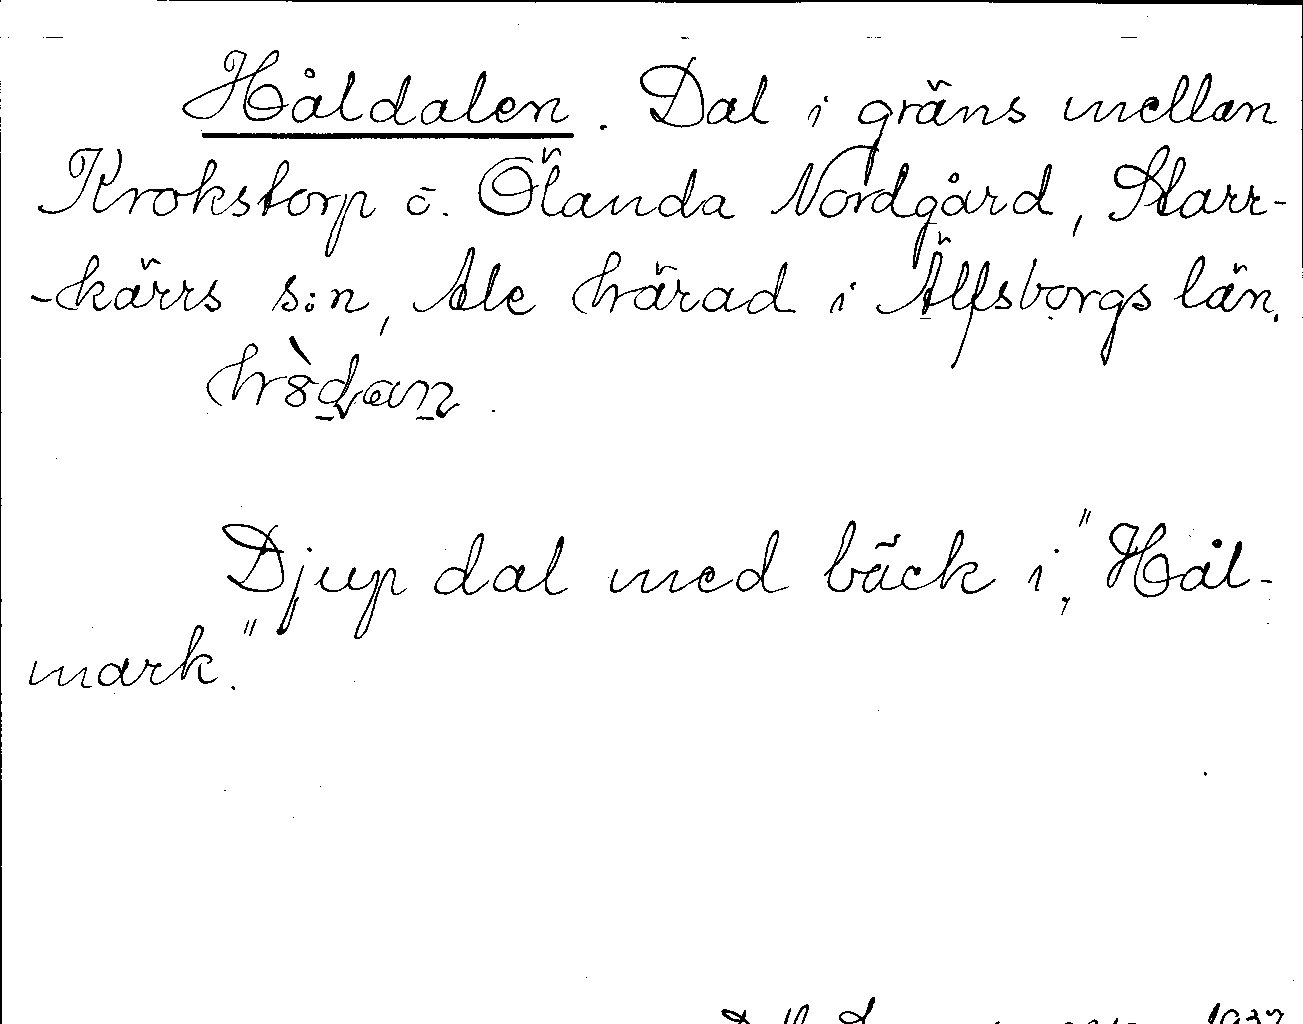 Håldalen. Dal i gräns mellan
Krokstorp o. Ölanda Nordgård, Starr-
-kärrs s:n, Ale härad i Älfsborgs län.
Djup dal med bäck i „Hål-
mark."
1937